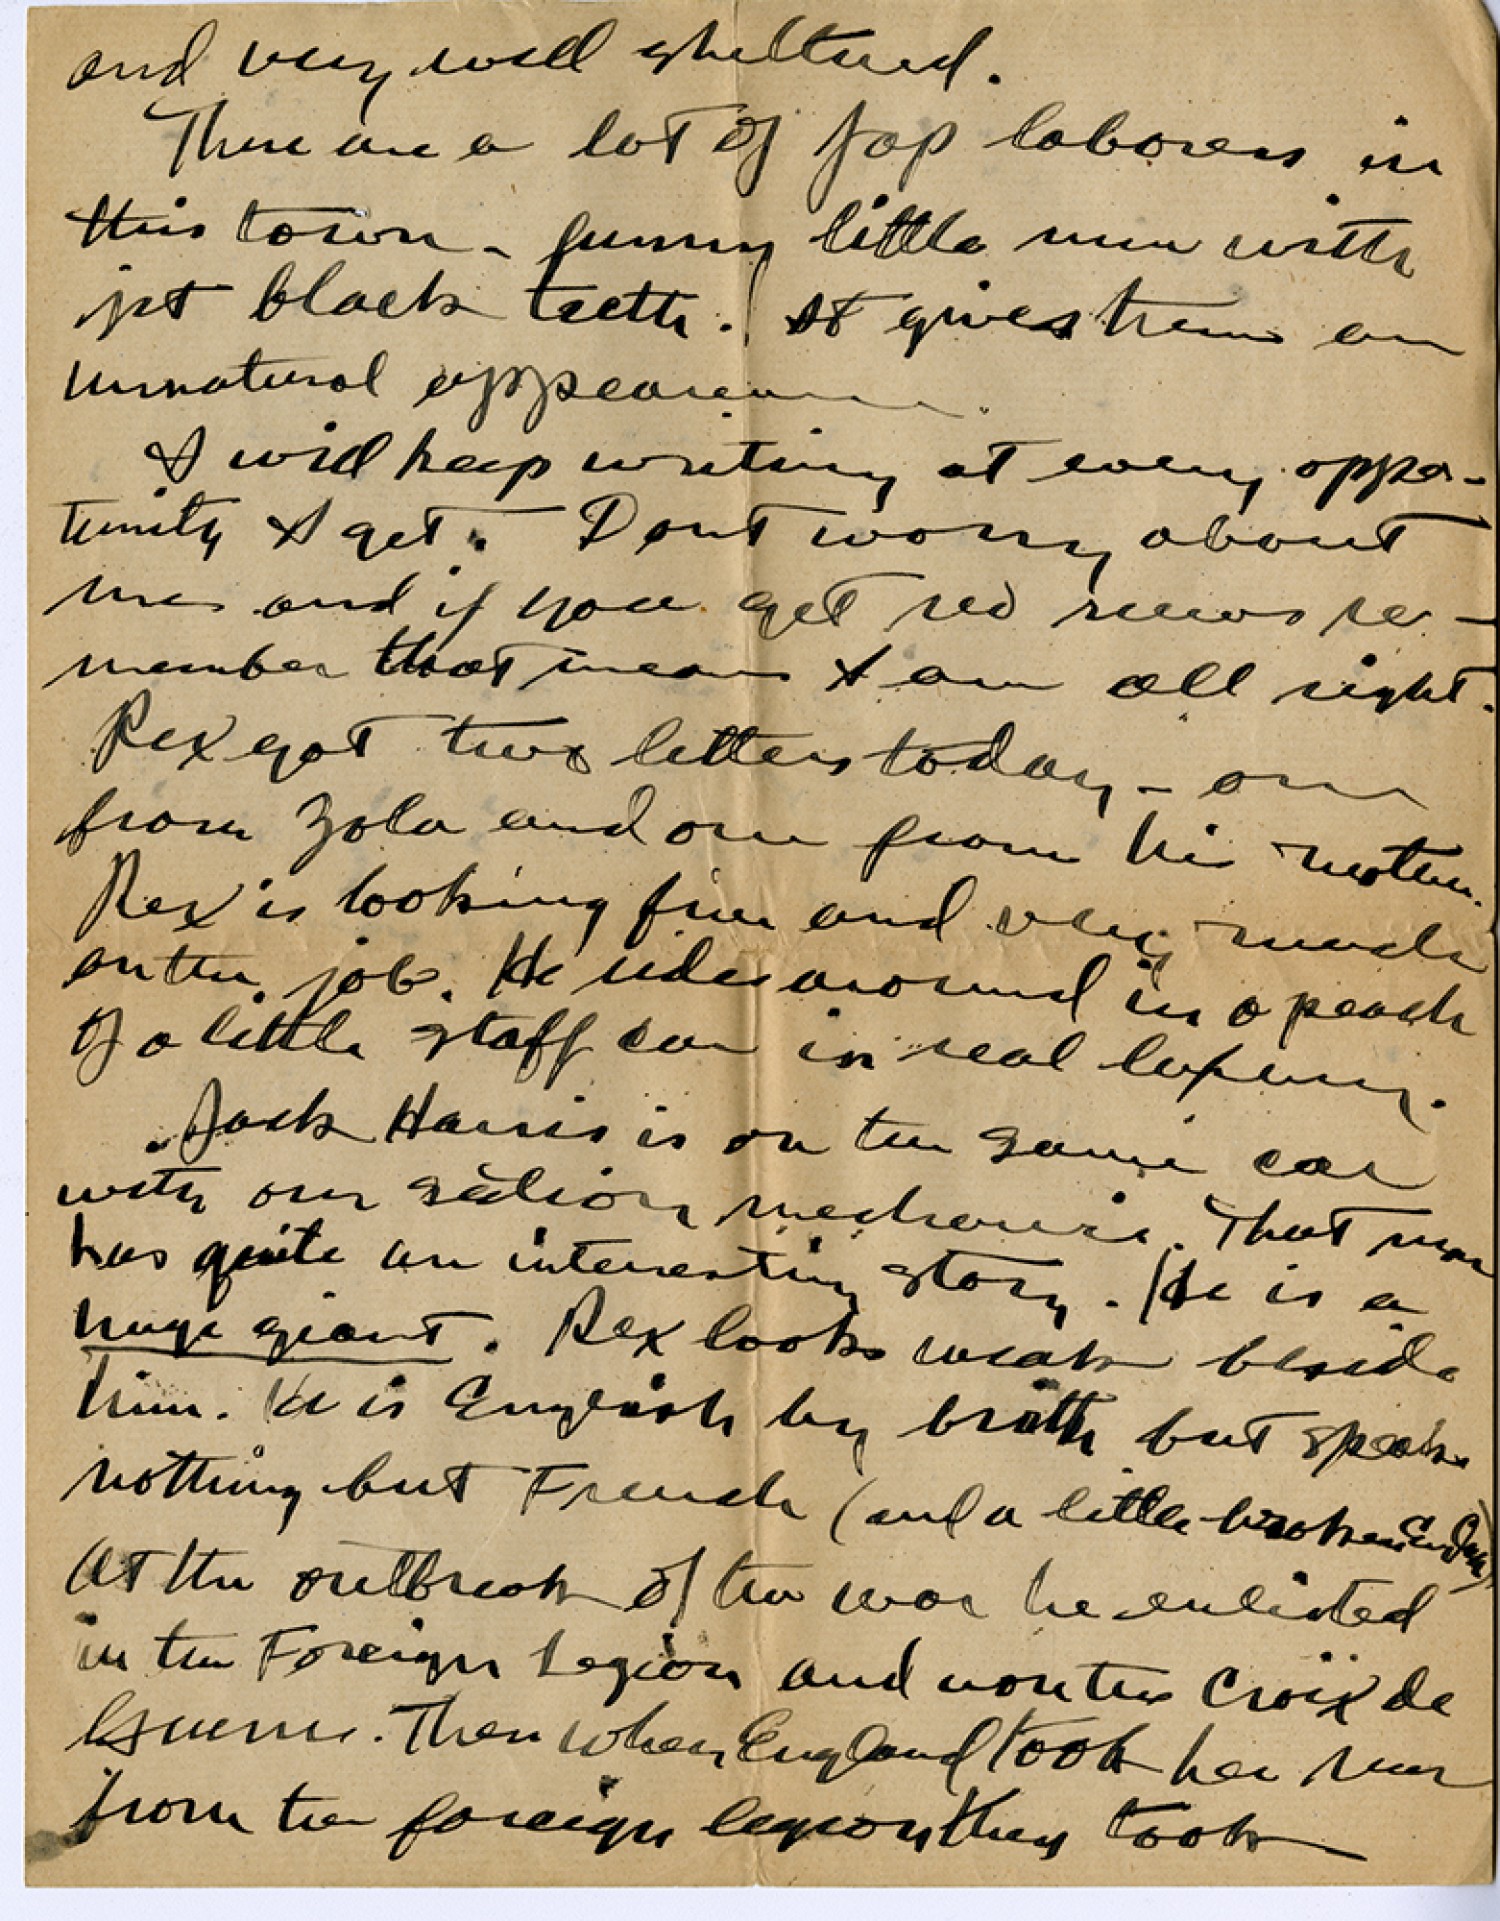 and very well sheltered.
There are a lot of Jap laborers in
this town - funny little men with
jet black teeth. It gives them an
unnatural appearance.
I will keep writing at every oppor-
tunity I get. Dont worry about
me and if you get no news re-
member that means I am all right.
Rex got two letters today - one
from Zola and one from his mother.
Rex is looking fine and very much
on the job. He rides around in a peach
of a little staff car in real luxury.
Jack Harris is on the same car
with our section mechanic. That man
has quite an interesting story. He is a
huge giant. Rex looks weak beside
him. He is English by birth but speaks
nothing but French (and a little broken English)
At the outbreak of the war he enlisted
in the Foreign Legion and won the Croix de
Guerre. Then when England took her men
from the foreign legion they took